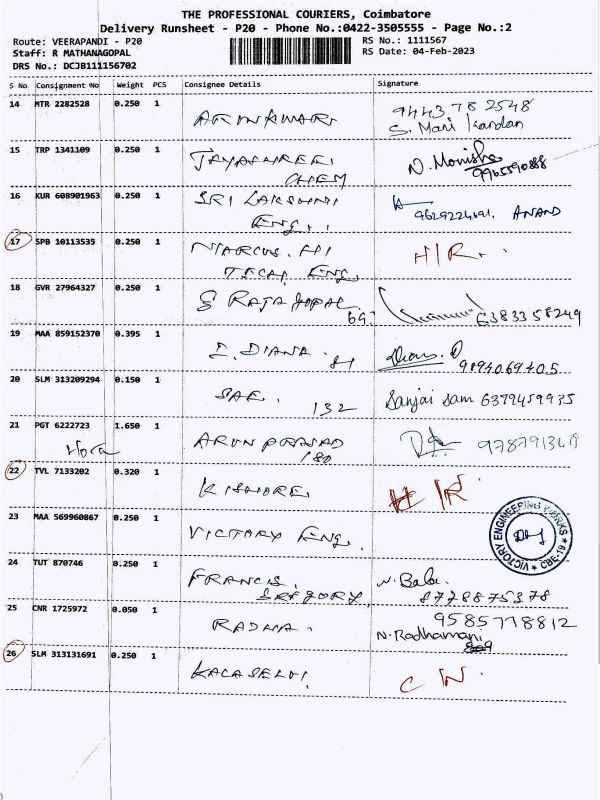 THE PROFESSIONAL COURIERS, Coimbatore
Delivery Runsheet - P20 - Phone No.:0422-3505555 - Page No.:2
Route: VEERAPANDI - P20
RS No.: 1111567
Staff: R MATHANAGOPAL
RS Date: 04-Feb-2023
DRS No.: DCJB111156702
S No. Consignment No Weight PCS Consignee Details Signature
14 MTR 2282528 0.250 1 ARUNKUMAR 9443782548
S. Mari kandan
15 TRP 1341109 0.250 1 JAYASHREE N. Monisha
CHEM 9965590888
16 KUR 608901963 0.250 1 SRI LAKSHMI
ENG. ANAND
17 SPB 10113535 0.250 1 MARCUS. H/R..
TECH ENG.
18 GVR 27964327 0.250 1 S RAJA GOPAL
69. 6383358249
19 MAA 859152370 0.395 1 I. DIANA.
9894069405
20 SLM 313209294 0.150 1 SAE. 132 Sanjai sam 6379459935
21 PGT 6222723 1.650 1 ARUN PRASAD
180
22 TVL 7133202 0.320 1 KISHORE. H R.
23 MAA 569960867 0.250 1 VICTORY ENG.
VICTORY ENGINEERING WORKS
CBE-19
24 TUT 870746 0.250 1 FRANCIS. N. Bala.
GREGORY. 8778875378
25 CNR 1725972 0.050 1 RADHA. 9585778812
N. Radhamani
26 SLM 313131691 0.250 1 KALASELVI. C N.